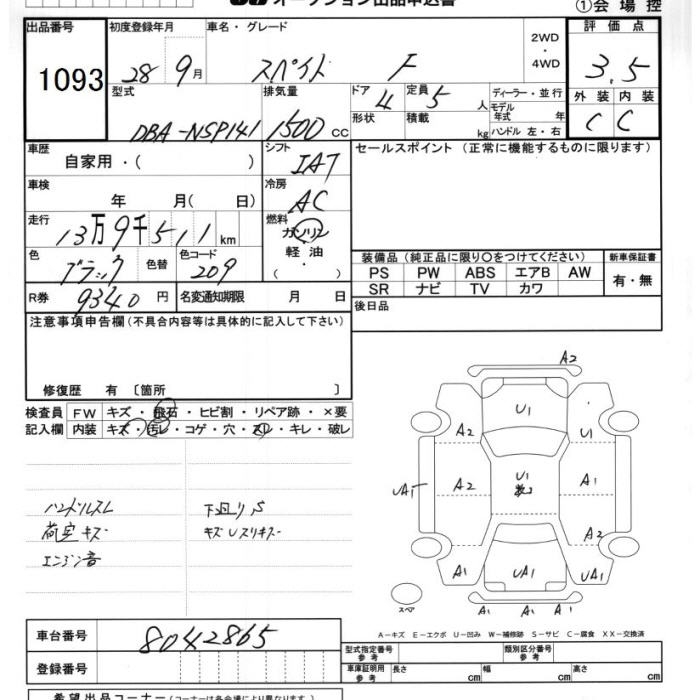 オークション出品申込書
①会場控
出品番号 初度登録年月 車名・グレード 2WD・4WD 評価点
1093 28年9月 スペイド F 3.5
型式 排気量 ドア 4 定員 5人 ディーラー・並行 外装 内装
DBA-NSP141 1500cc 形状 積載 kg モデル年式 年 ハンドル 左・右 C C
車歴 自家用・( ) シフト IAT セールスポイント (正常に機能するものに限ります)
車検 年 月( 日) 冷房 AC
走行 13万9千511km 燃料 ガソリン・軽油 ( )
色 ブラック 色替 色コード 209
装備品 (純正品に限り○をつけてください) 新車保証書
PS PW ABS エアB AW 有・無
SR ナビ TV カワ
R券 9340円 名変通知期限 月 日 後日品
注意事項申告欄 (不具合内容等は具体的に記入して下さい)
修復歴 有 〔箇所 〕
検査員 FW キズ・飛石・ヒビ割・リペア跡・×要
記入欄 内装 キズ・汚レ・コゲ・穴・スレ・キレ・破レ
A2
U1
A2 U1
A2 U1 A1
UAT
A2
A1 UA1 UA1
スペア A1 A1 A1
ハンドルスレ 下廻りS
荷室キズ キズUスリキズ
エンジン音
A-キズ E-エクボ U-凹み W-補修跡 S-サビ C-腐食 XX-交換済
車台番号 8042865
登録番号
型式指定番号 参考 類別区分番号 参考
車庫証明用 参考 長さ cm 幅 cm 高さ cm
希望出品コーナー (コーナーは各会場により異なります)